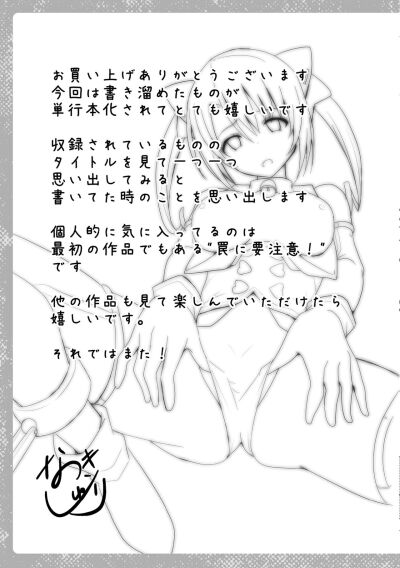 お買い上げありがとうございます
今回は書き溜めたものが
単行本化されてとても嬉しいです
収録されているものの
タイトルを見て一つ一つ
思い出してみると
書いてた時のことを思い出します
個人的に気に入ってるのは
最初の作品でもある“罠に要注意！”
です
他の作品も見て楽しんでいただけたら
嬉しいです。
それではまた！